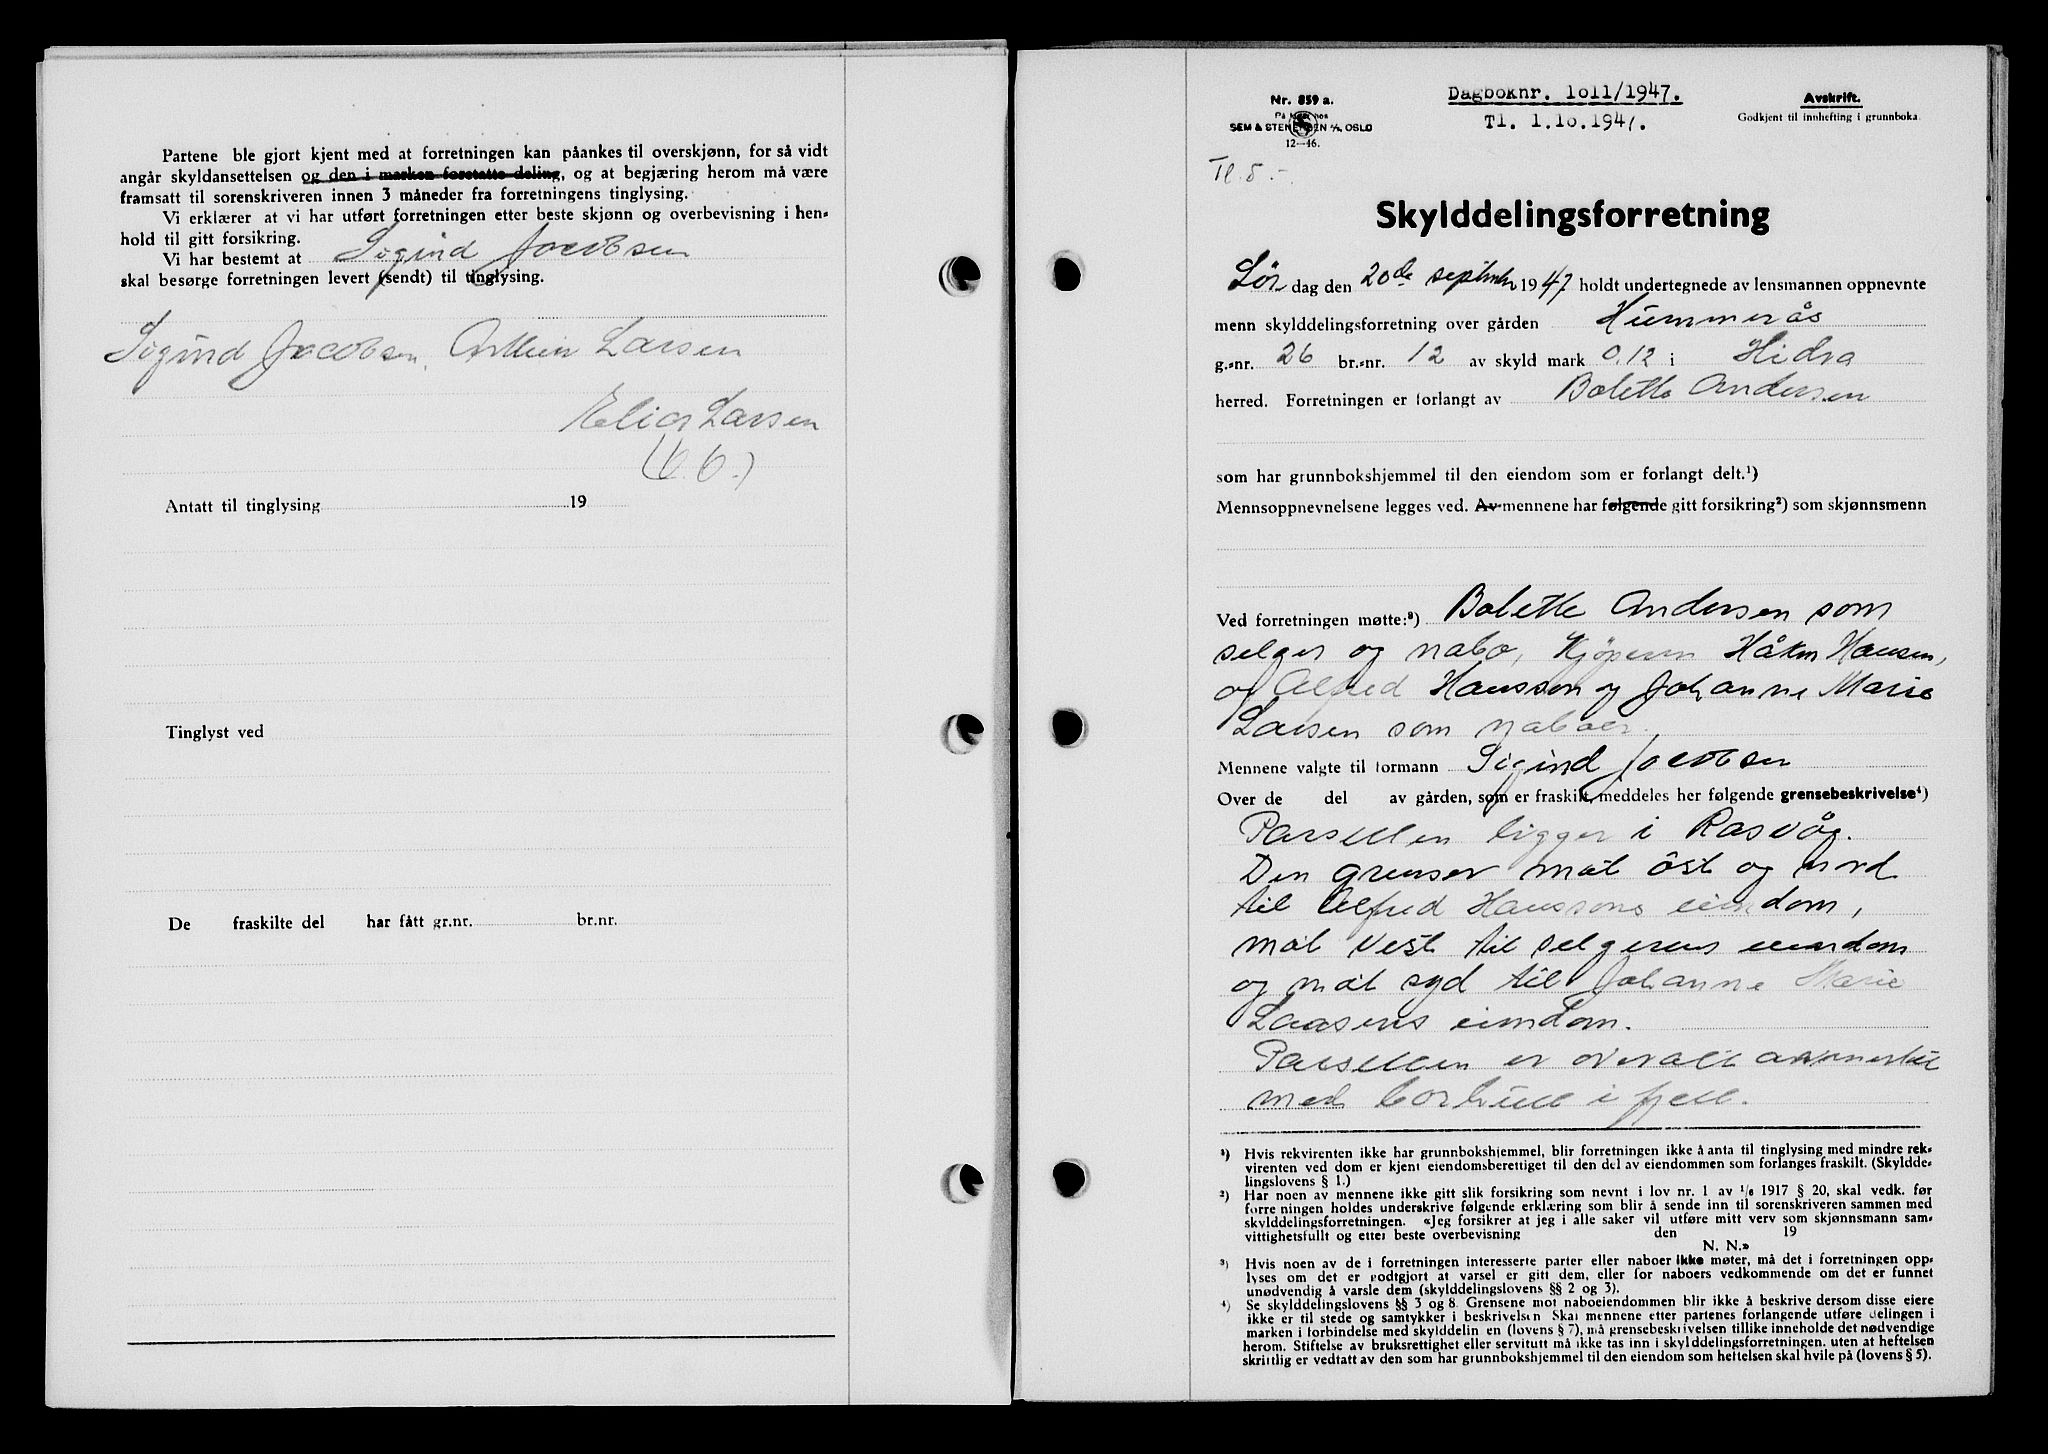 Partene ble gjort kjent med at forretningen kan påankes til overskjønn, for så vidt
angår skyldansettelsen og den i marken foretatte deling, og at begjæring herom må være
framsatt til sorenskriveren innen 3 måneder fra forretningens tinglysing.
Vi erklærer at vi har utført forretningen etter beste skjønn og overbevisning i hen-
hold til gitt forsikring.
Vi har bestemt at Sigind Jacobsen
skal besørge forretningen levert (sendt) til tinglysing.
Sigind Jacobsen. Larsen
Elias Larsen
Antatt til tinglysing 19
Tinglyst ved
De fraskilte del har fått gr.nr. br.nr.
Nr. 859 a.
SEM & STENERSEN A/S, OSLO
12—46.
Dagboknr. 1011/1947.
Tl. 1.10.1947.
Avskrift.
Godkjent til innhefting i grunnboka.
Tl. 5.-
Skylddelingsforretning
Lør dag den 20de september 1947 holdt undertegnede av lensmannen oppnevnte
menn skylddelingsforretning over gården Hummerås
g.-nr. 26 br.-nr. 12 av skyld mark 0.12 i Hidra
herred. Forretningen er forlangt av Bolette Andersen
som har grunnbokshjemmel til den eiendom som er forlangt delt.¹)
Mennsoppnevnelsene legges ved. Av mennene har følgende gitt forsikring²) som skjønnsmenn
Ved forretningen møtte:³) Bolette Andersen som
selger og nabo, Kjøperen Håkon Hansen,
og Alfred Hansson og Johanne Marie
Larsen som naboer.
Mennene valgte til formann Sigind Jacobsen
Over de del av gården, som er fraskilt, meddeles her følgende grensebeskrivelse⁴)
Parsellen ligger i Rasvåg.
Den grenser mot øst og nord
til Alfred Hanssons eiendom,
mot vest til selgerens eiendom
og mot syd til Johanne Marie
Larsens eiendom.
Parsellen er overalt avmerket
med borhull i fjell.
¹) Hvis rekvirenten ikke har grunnbokshjemmel, blir forretningen ikke å anta til tinglysing med mindre rek-
virenten ved dom er kjent eiendomsberettiget til den del av eiendommen som forlanges fraskilt. (Skyldde-
lingslovens § 1.)
²) Har noen av mennene ikke gitt slik forsikring som nevnt i lov nr. 1 av 1/6 1917 § 20, skal vedk. før
forretningen holdes underskrive følgende erklæring som blir å sende inn til sorenskriveren sammen med
skylddelingsforretningen. «Jeg forsikrer at jeg i alle saker vil utføre mitt verv som skjønnsmann sam-
vittighetsfullt og etter beste overbevisning den 19
N. N.»
³) Hvis noen av de i forretningen interesserte parter eller naboer ikke møter, må det i forretningen opp-
lyses om det er godtgjort at varsel er gitt dem, eller for naboers vedkommende om det er funnet
unødvendig å varsle dem (skylddelingslovens §§ 2 og 3).
⁴) Se skylddelingslovens §§ 3 og 8. Grensene mot naboeiendommen blir ikke å beskrive dersom disse eiere
ikke er til stede og samtykker i beskrivelsen. Skal mennene etter partenes forlangende utføre delingen i
marken i forbindelse med skylddelingen (lovens § 7), må grensebeskrivelsen tillike inneholde det nødvendige
herom. Stiftelse av bruksrettighet eller servitutt må ikke tas inn i skylddelingsforretningen, uten at heftelsen
skriftlig er vedtatt av den som har grunnbokshjemmel til den eiendom som heftelsen skal hvile på (lovens § 5).